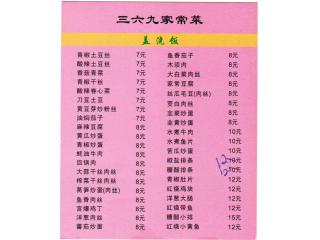 三六九家常菜
盖浇饭
青椒土豆丝 7元
酸辣土豆丝 7元
香菇青菜 7元
青椒干丝 7元
酸辣卷心菜 7元
刀豆土豆 7元
黄豆芽炒粉丝 7元
油焖茄子 7元
麻辣豆腐 8元
黄瓜炒蛋 8元
青椒炒蛋 8元
蚝油牛肉 8元
回锅肉 8元
大蒜干丝肉丝 8元
榨菜干丝肉丝 8元
莴笋炒蛋(肉丝) 8元
鱼香肉丝 8元
宫爆鸡丁 8元
洋葱肉丝 8元
蕃茄炒蛋 8元
鱼香茄子 8元
木须肉 8元
大白菜肉丝 8元
家常豆腐 8元
丝瓜毛豆(肉丝) 8元
茭白肉丝 8元
韭菜炒蛋 8元
韭黄炒蛋 8元
水煮牛肉 10元
水煮鱼片 10元
苦瓜炒蛋 10元
椒盐排条 12
糖醋排条 12
青椒肚片 12元
红烧鸡块 12元
洋葱大肠 12元
红烧带鱼 12元
糖醋小排 15元
红烧小黄鱼 12元